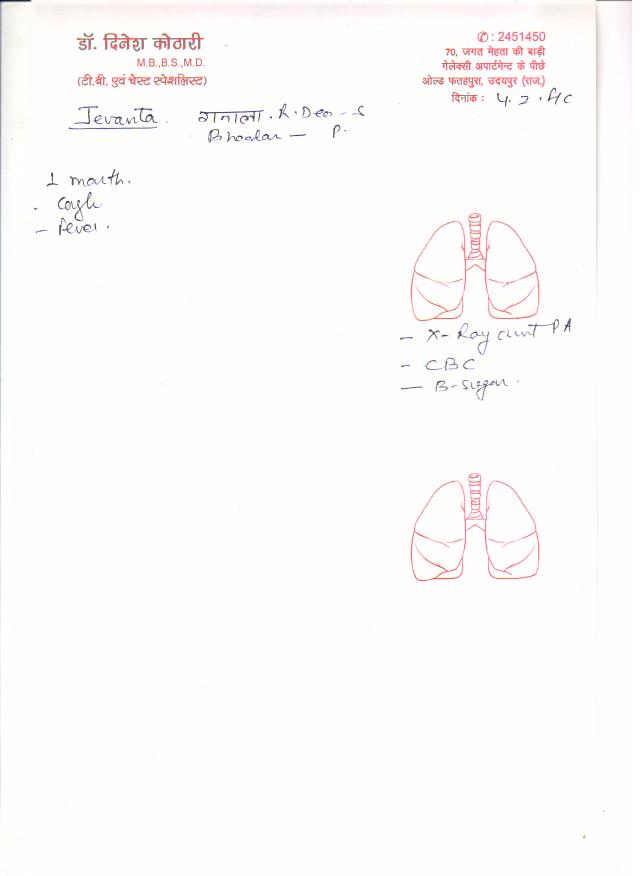 डॉ. दिनेश कोठारी
M.B.,B.S.,M.D.
(टी.बी. एवं चेस्ट स्पेशलिस्ट)
✆ : 2451450
70, जगत मेहता की बाड़ी
गेलेक्सी अपार्टमेन्ट के पीछे
ओल्ड फतहपुरा, उदयपुर (राज.)
दिनांक : 4.2.
Jevanta. गनाला. R. Deo - S
Bhodar - P.
1 month.
- Cough
- fever.
- X-Ray chest PA
- CBC
- B-sugar.